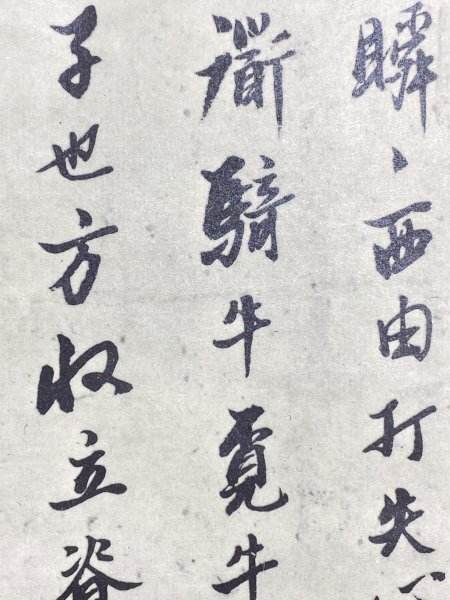 瞬、西由打失
騎牛覓牛
子也方收立脊